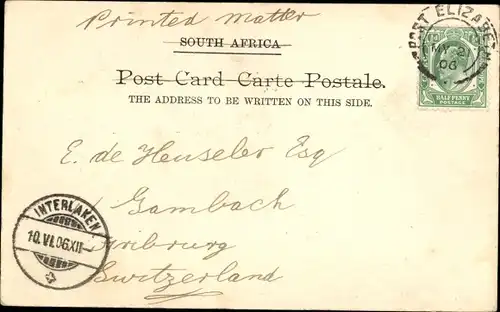 Printed matter
SOUTH AFRICA
Post Card-Carte Postale.
THE ADDRESS TO BE WRITTEN ON THIS SIDE.
PORT ELIZABETH
MY 2
06
HALF PENNY
POSTAGE
E. de Henseler Esq
Gambach
Fribourg
Switzerland
INTERLAKEN
10.VI.06.XII